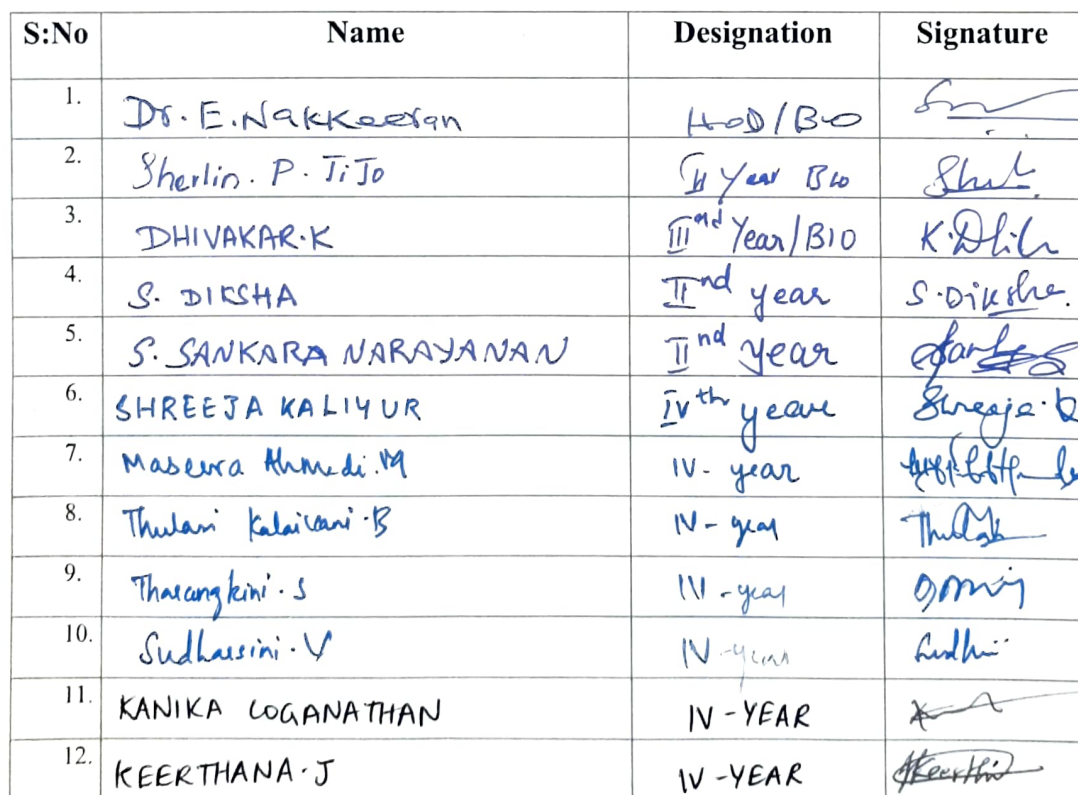 S:No Name Designation Signature
1. Dr. E. Nakkeeran HOD/BIO
2. Sherlin. P. JiJo II Year Bio
3. DHIVAKAR.K IIIrd Year/BIO K.
4. S. DIKSHA IInd year S.Diksha.
5. S. SANKARA NARAYANAN IInd year
6. SHREEJA KALIYUR IVth year Shreeja.K
7. Maseera Ahmedi.M IV- year
8. Thulasi Kalaivani.B IV- year
9. Tharangkini.S IV-year
10. Sudharsini.V IV-year
11. KANIKA LOGANATHAN IV-YEAR
12. KEERTHANA.J IV-YEAR